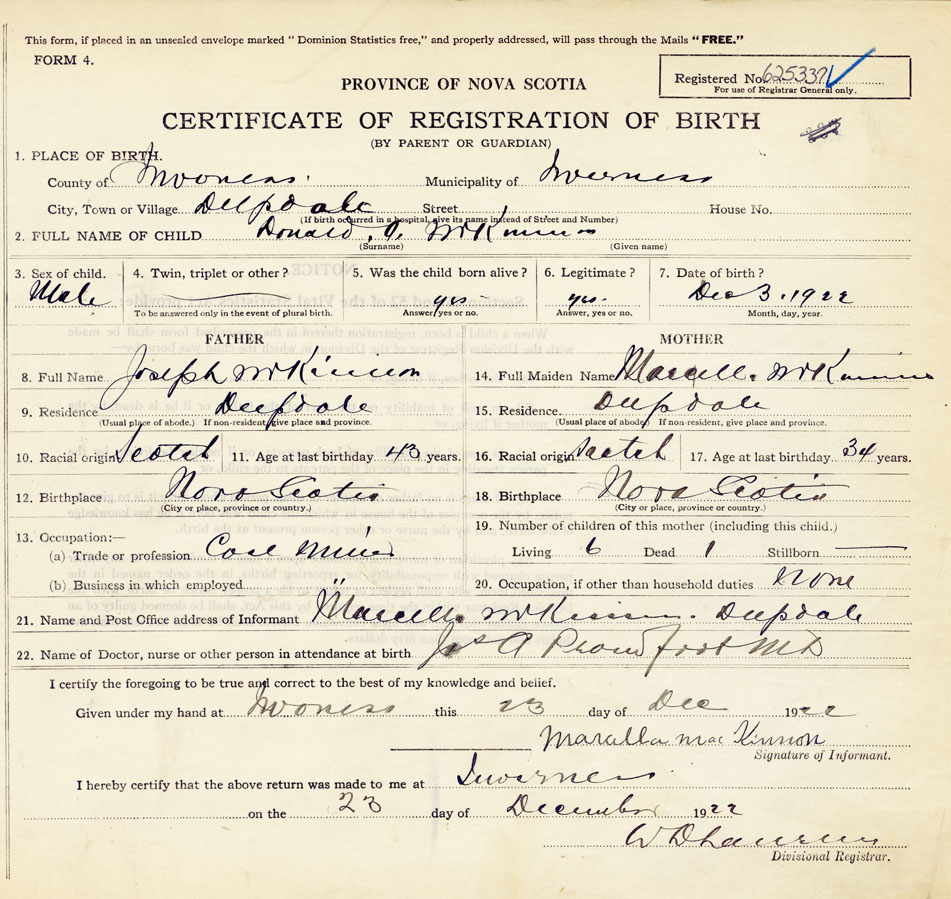 This form, if placed in an unsealed envelope marked " Dominion Statistics free," and properly addressed, will pass through the Mails "FREE."
FORM 4.
Registered No. 625337
For use of Registrar General only.
PROVINCE OF NOVA SCOTIA
CERTIFICATE OF REGISTRATION OF BIRTH
(BY PARENT OR GUARDIAN)
1. PLACE OF BIRTH.
County of Inverness. Municipality of Inverness
City, Town or Village Deepdale Street House No.
(If birth occurred in a hospital, give its name instead of Street and Number)
2. FULL NAME OF CHILD Donald. McKinnon
(Surname) (Given name)
3. Sex of child. 4. Twin, triplet or other? 5. Was the child born alive? 6. Legitimate? 7. Date of birth?
Male yes yes. Dec 3. 1922
To be answered only in the event of plural birth. Answer, yes or no. Answer, yes or no. Month, day, year.
FATHER MOTHER
8. Full Name Joseph McKinnon 14. Full Maiden Name Marcella McKinnon
9. Residence Deepdale 15. Residence. Deepdale
(Usual place of abode.) If non-resident, give place and province. (Usual place of abode) If non-resident, give place and province.
10. Racial origin Scotch 11. Age at last birthday 43 years. 16. Racial origin Scotch 17. Age at last birthday 34 years.
12. Birthplace Nova Scotia 18. Birthplace Nova Scotia
(City or place, province or country.) (City or place, province or country.)
13. Occupation:— 19. Number of children of this mother (including this child.)
(a) Trade or profession Coal Miner Living 6 Dead 1 Stillborn
(b) Business in which employed " 20. Occupation, if other than household duties none
21. Name and Post Office address of Informant Marcella McKinnon. Deepdale
22. Name of Doctor, nurse or other person in attendance at birth Jas A Proudfoot MD
I certify the foregoing to be true and correct to the best of my knowledge and belief.
Given under my hand at Inverness this 23 day of Dec 1922
Marcella Mac Kinnon
Signature of Informant.
I hereby certify that the above return was made to me at Inverness
on the 23 day of December 1922
Divisional Registrar.